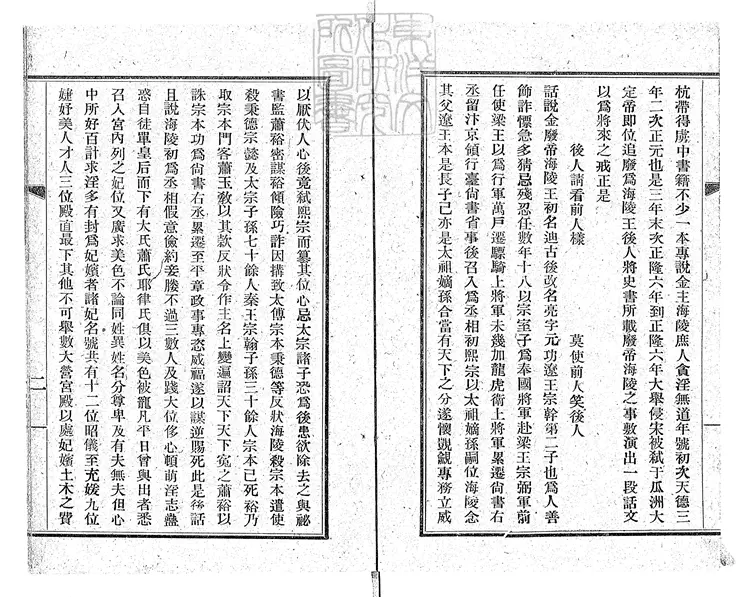 杭帶得虜中書籍不少一本專說金主海陵庶人貪淫無道年號初次天德三
年二次正元也是三年末次正隆六年到正隆六年大舉侵宋被弒于瓜洲大
定帝即位追廢爲海陵王後人將史書所載廢帝海陵之事敷演出一段話文
以爲將來之戒正是
後人請看前人樣 莫使前人笑後人
話說金廢帝海陵王初名迪古後改名亮字元功遼王宗幹第二子也爲人善
飾詐慓急多猜忌殘忍任數年十八以宗室子爲奉國將軍赴梁王宗弼軍前
任使梁王以爲行軍萬戶遷驃騎上將軍未幾加龍虎衛上將軍累遷尚書右
丞留汴京領行臺尚書省事後召入爲丞相初熙宗以太祖嫡孫嗣位海陵念
其父遼王本是長子己亦是太祖嫡孫合當有天下之分遂懷覬覦專務立威
以厭伏人心後竟弒熙宗而簒其位心忌太宗諸子恐爲後患欲除去之與祕
書監蕭裕密謀裕傾險巧詐因搆致太傅宗本秉德等反狀海陵殺宗本遣使
殺秉德宗懿及太宗子孫七十餘人秦王宗翰子孫三十餘人宗本已死裕乃
取宗本門客蕭玉敎以其款反狀令作主名上變遍詔天下天下冤之蕭裕以
誅宗本功爲尚書右丞累遷至平章政事專恣威福遂以謀逆賜死此是後話
且說海陵初爲丞相假意儉約妾媵不過三數人及踐大位侈心頓萌淫志蠱
惑自徒單皇后而下有大氏蕭氏耶律氏俱以美色被寵凡平日曾與出者悉
召入宮內列之妃位又廣求美色不論同姓異姓名分尊卑及有夫無夫但心
中所好百計求淫多有封爲妃嬪者諸妃名號共有十二位昭儀至充媛九位
婕妤美人才人三位殿直最下其他不可舉數大營宮殿以處妃嬪土木之費